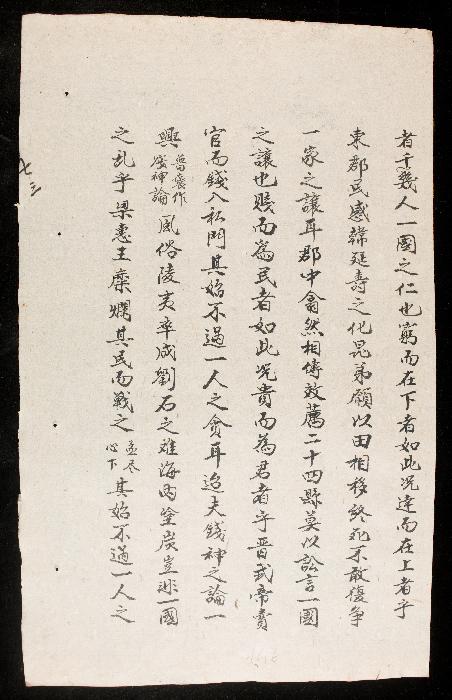 者千幾人一國之仁也窮而在下者如此况達而在上者乎
東郡民感韓延壽之化昆弟願以田相移終死不敢復争
一家之讓耳郡中翕然相傳效薦二十四縣莫以訟言一國
之讓也賤而為民者如此况貴而為君者乎晋武帝賣
官而錢入私門其始不過一人之貪耳迨夫錢神之論一
興魯褒作錢神論風俗陵夷卒成劉石之难海内塗炭豈非一國
之乱乎梁惠王糜爛其民而戰之孟尽心下其始不過一人之
七三